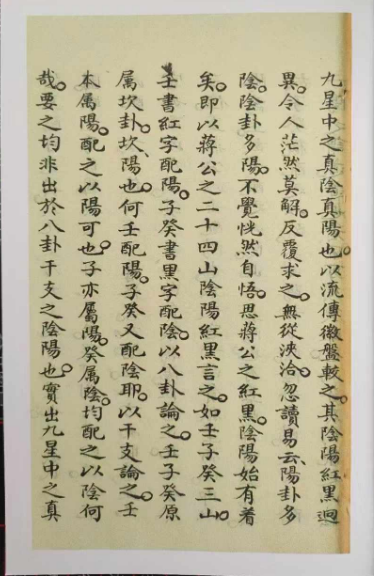 九星中之真陰真陽也。以流傳徽盤較之。其陰陽紅黑迥
異。令人茫然莫解。反覆求之。無從浹洽。忽讀易云。陽卦多
陰。陰卦多陽。不覺恍然自悟。思蔣公之紅黑。陰陽始有着
矣。即以蔣公之二十四山陰陽紅黑言之。如壬子癸三山。
壬書紅字配陽。子癸書黑字配陰。以八卦論之。壬子癸原
属坎卦。坎陽也。何壬配陽。子癸又配陰耶。以干支論之。壬
本属陽。配之以陽可也。子亦屬陽。癸属陰。均配之以陰何
哉。要之均非出於八卦干支之陰陽也。實出九星中之真